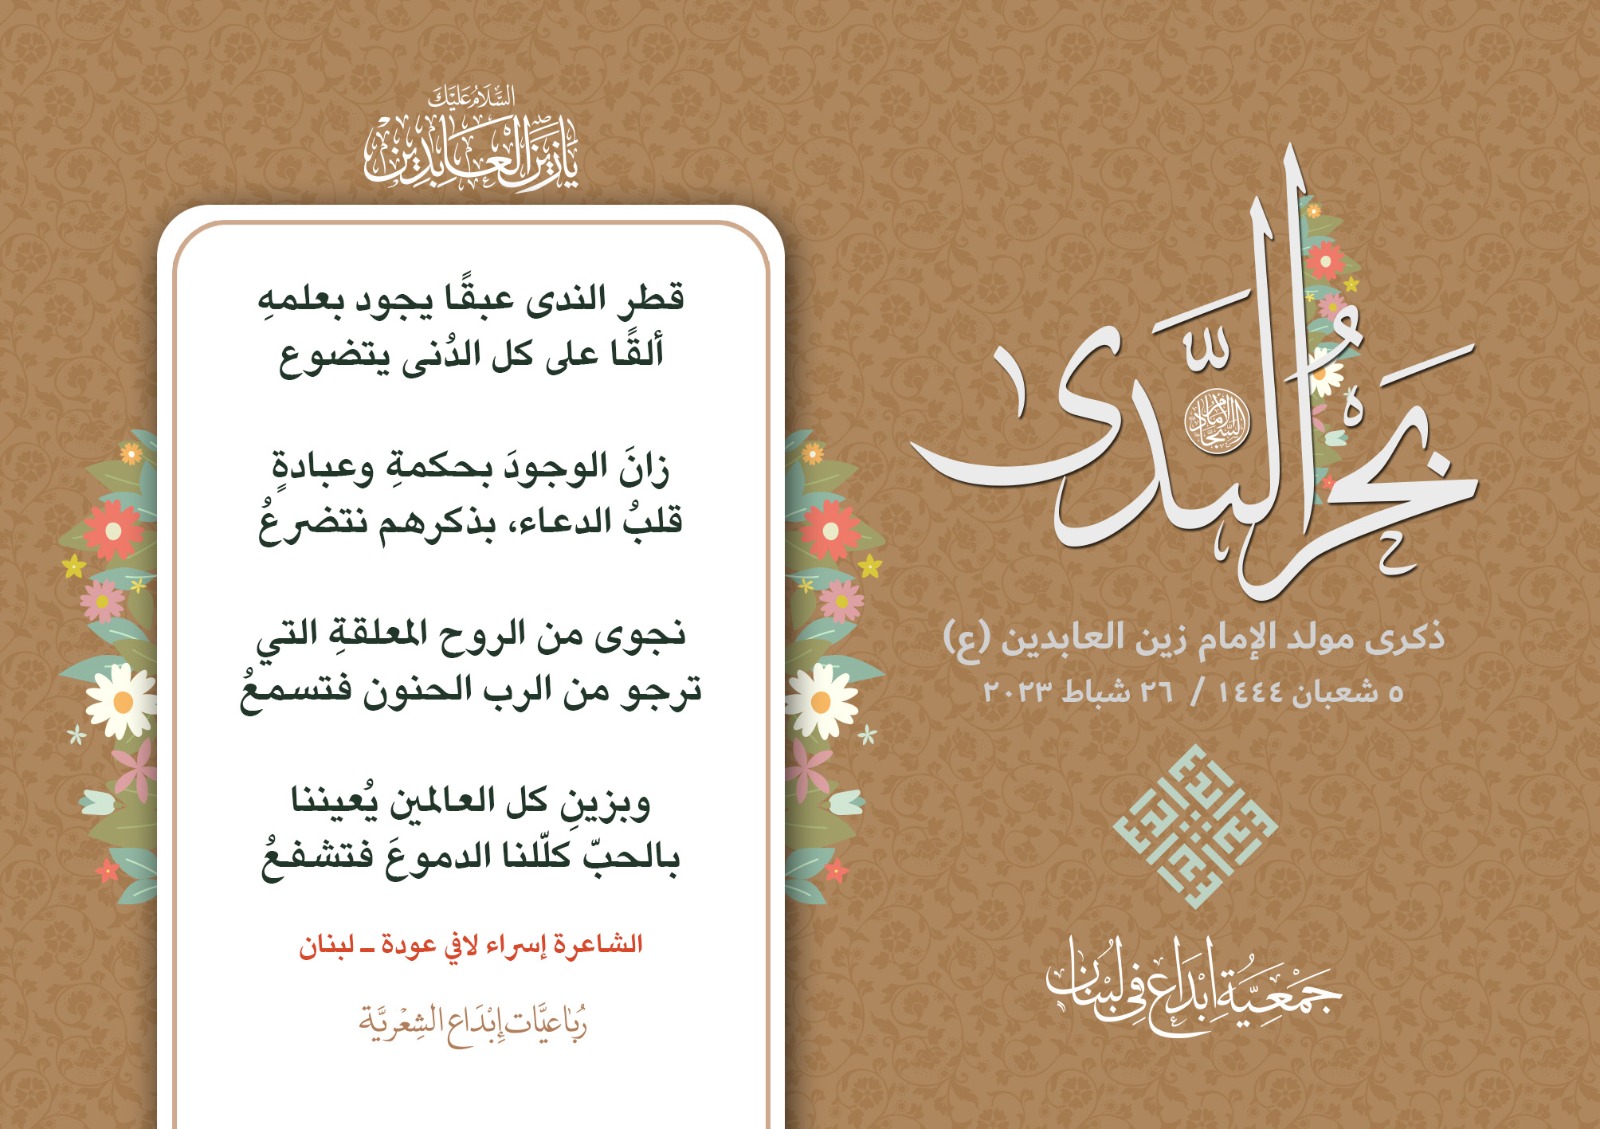 بَحْرُ النَّدَى
الإمام السجاد
ذكرى مولد الإمام زين العابدين (ع)
٥ شعبان ١٤٤٤ / ٢٦ شباط ٢٠٢٣
جَمْعِيَّة إبْدَاع فِي لُبْنَان
السَّلَامُ عَلَيْكَ
يَا زَيْنَ الْعَابِدِين
قطر الندى عبقًا يجود بعلمهِ
ألقًا على كل الدُنى يتضوع
زانَ الوجودَ بحكمةِ وعبادةٍ
قلبُ الدعاء، بذكرهم نتضرعُ
نجوى من الروح المعلقةِ التي
ترجو من الرب الحنون فتسمعُ
وبزينِ كل العالمين يُعيننا
بالحبّ كلّلنا الدموعَ فتشفعُ
الشاعرة إسراء لافي عودة ـ لبنان
رُبَاعيَّات إبْدَاع الشِعْريَّة